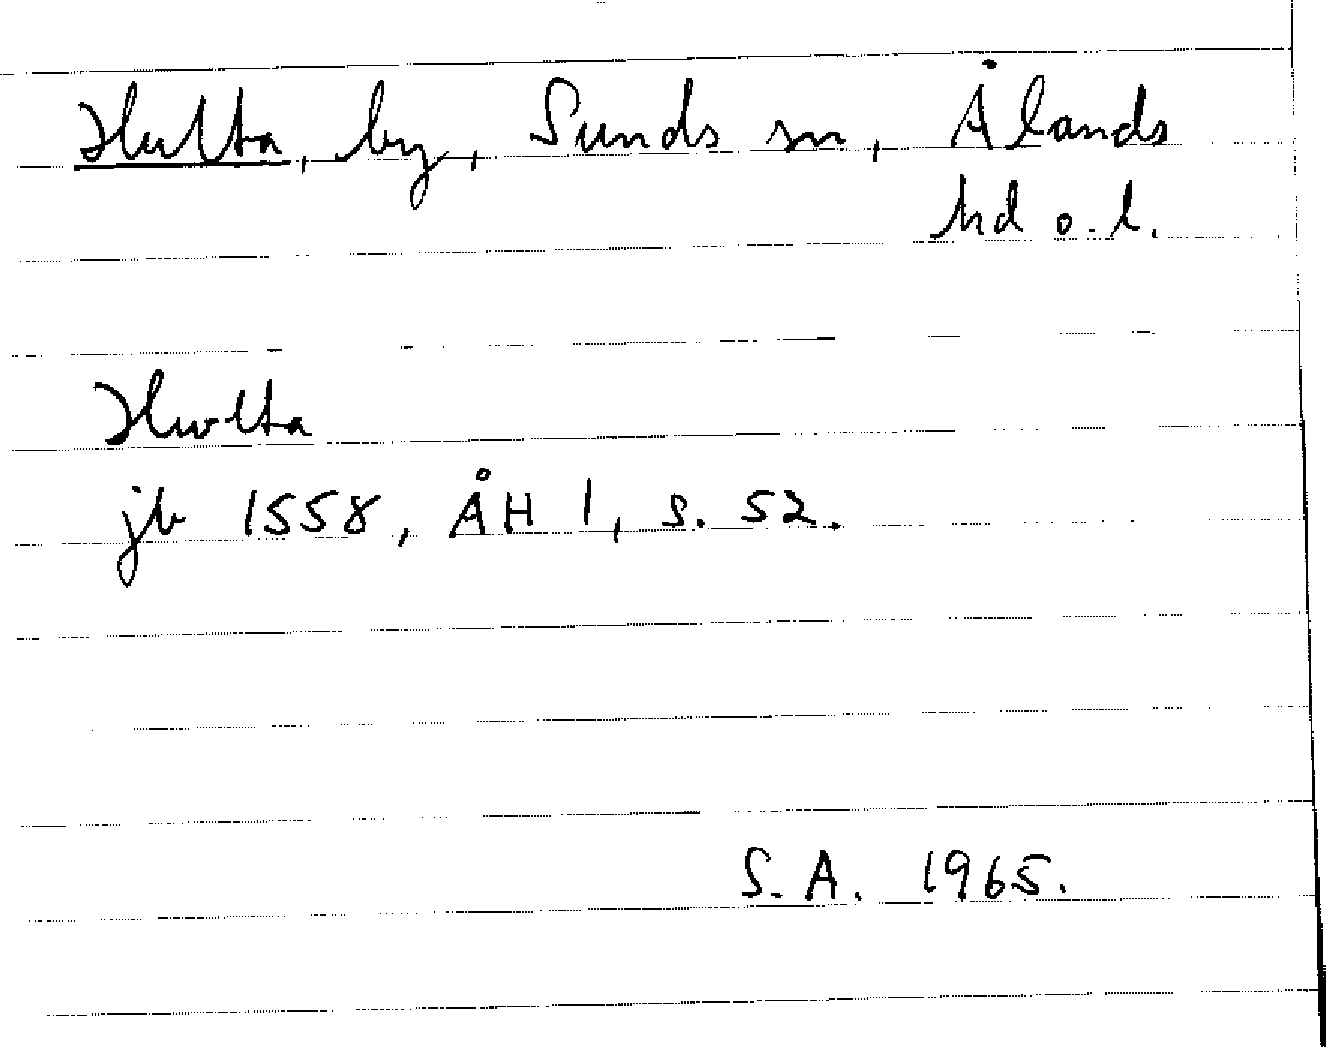 Hulta, by, Sunds sn, Ålands
hd o. l.
Hwlta
jb 1558, ÅH 1, s. 52.
S. A. 1965.